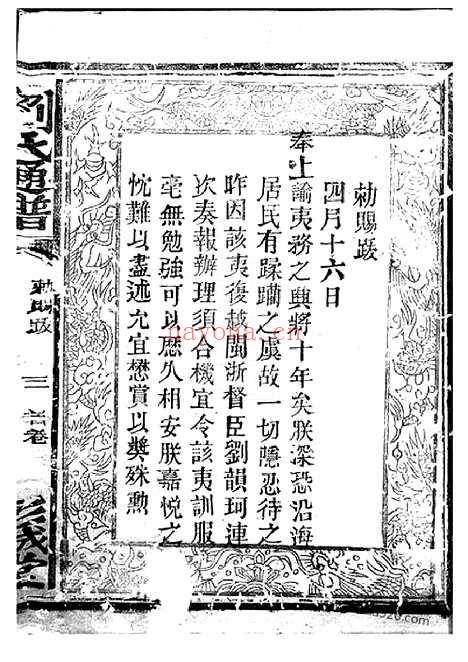 勅賜跋
四月十六日
奉上諭夷務之興將十年矣朕深恐沿海
居民有蹂躪之虞故一切隱忍待之
昨因該夷復越閩浙督臣劉韻珂連
次奏報辦理須合機宜令該夷訓服
毫無勉強可以歷久相安朕嘉悅之
忱難以盡述允宜懋賞以奬殊勲
劉氏通譜
勅賜跋
三
首卷
nayona.cn